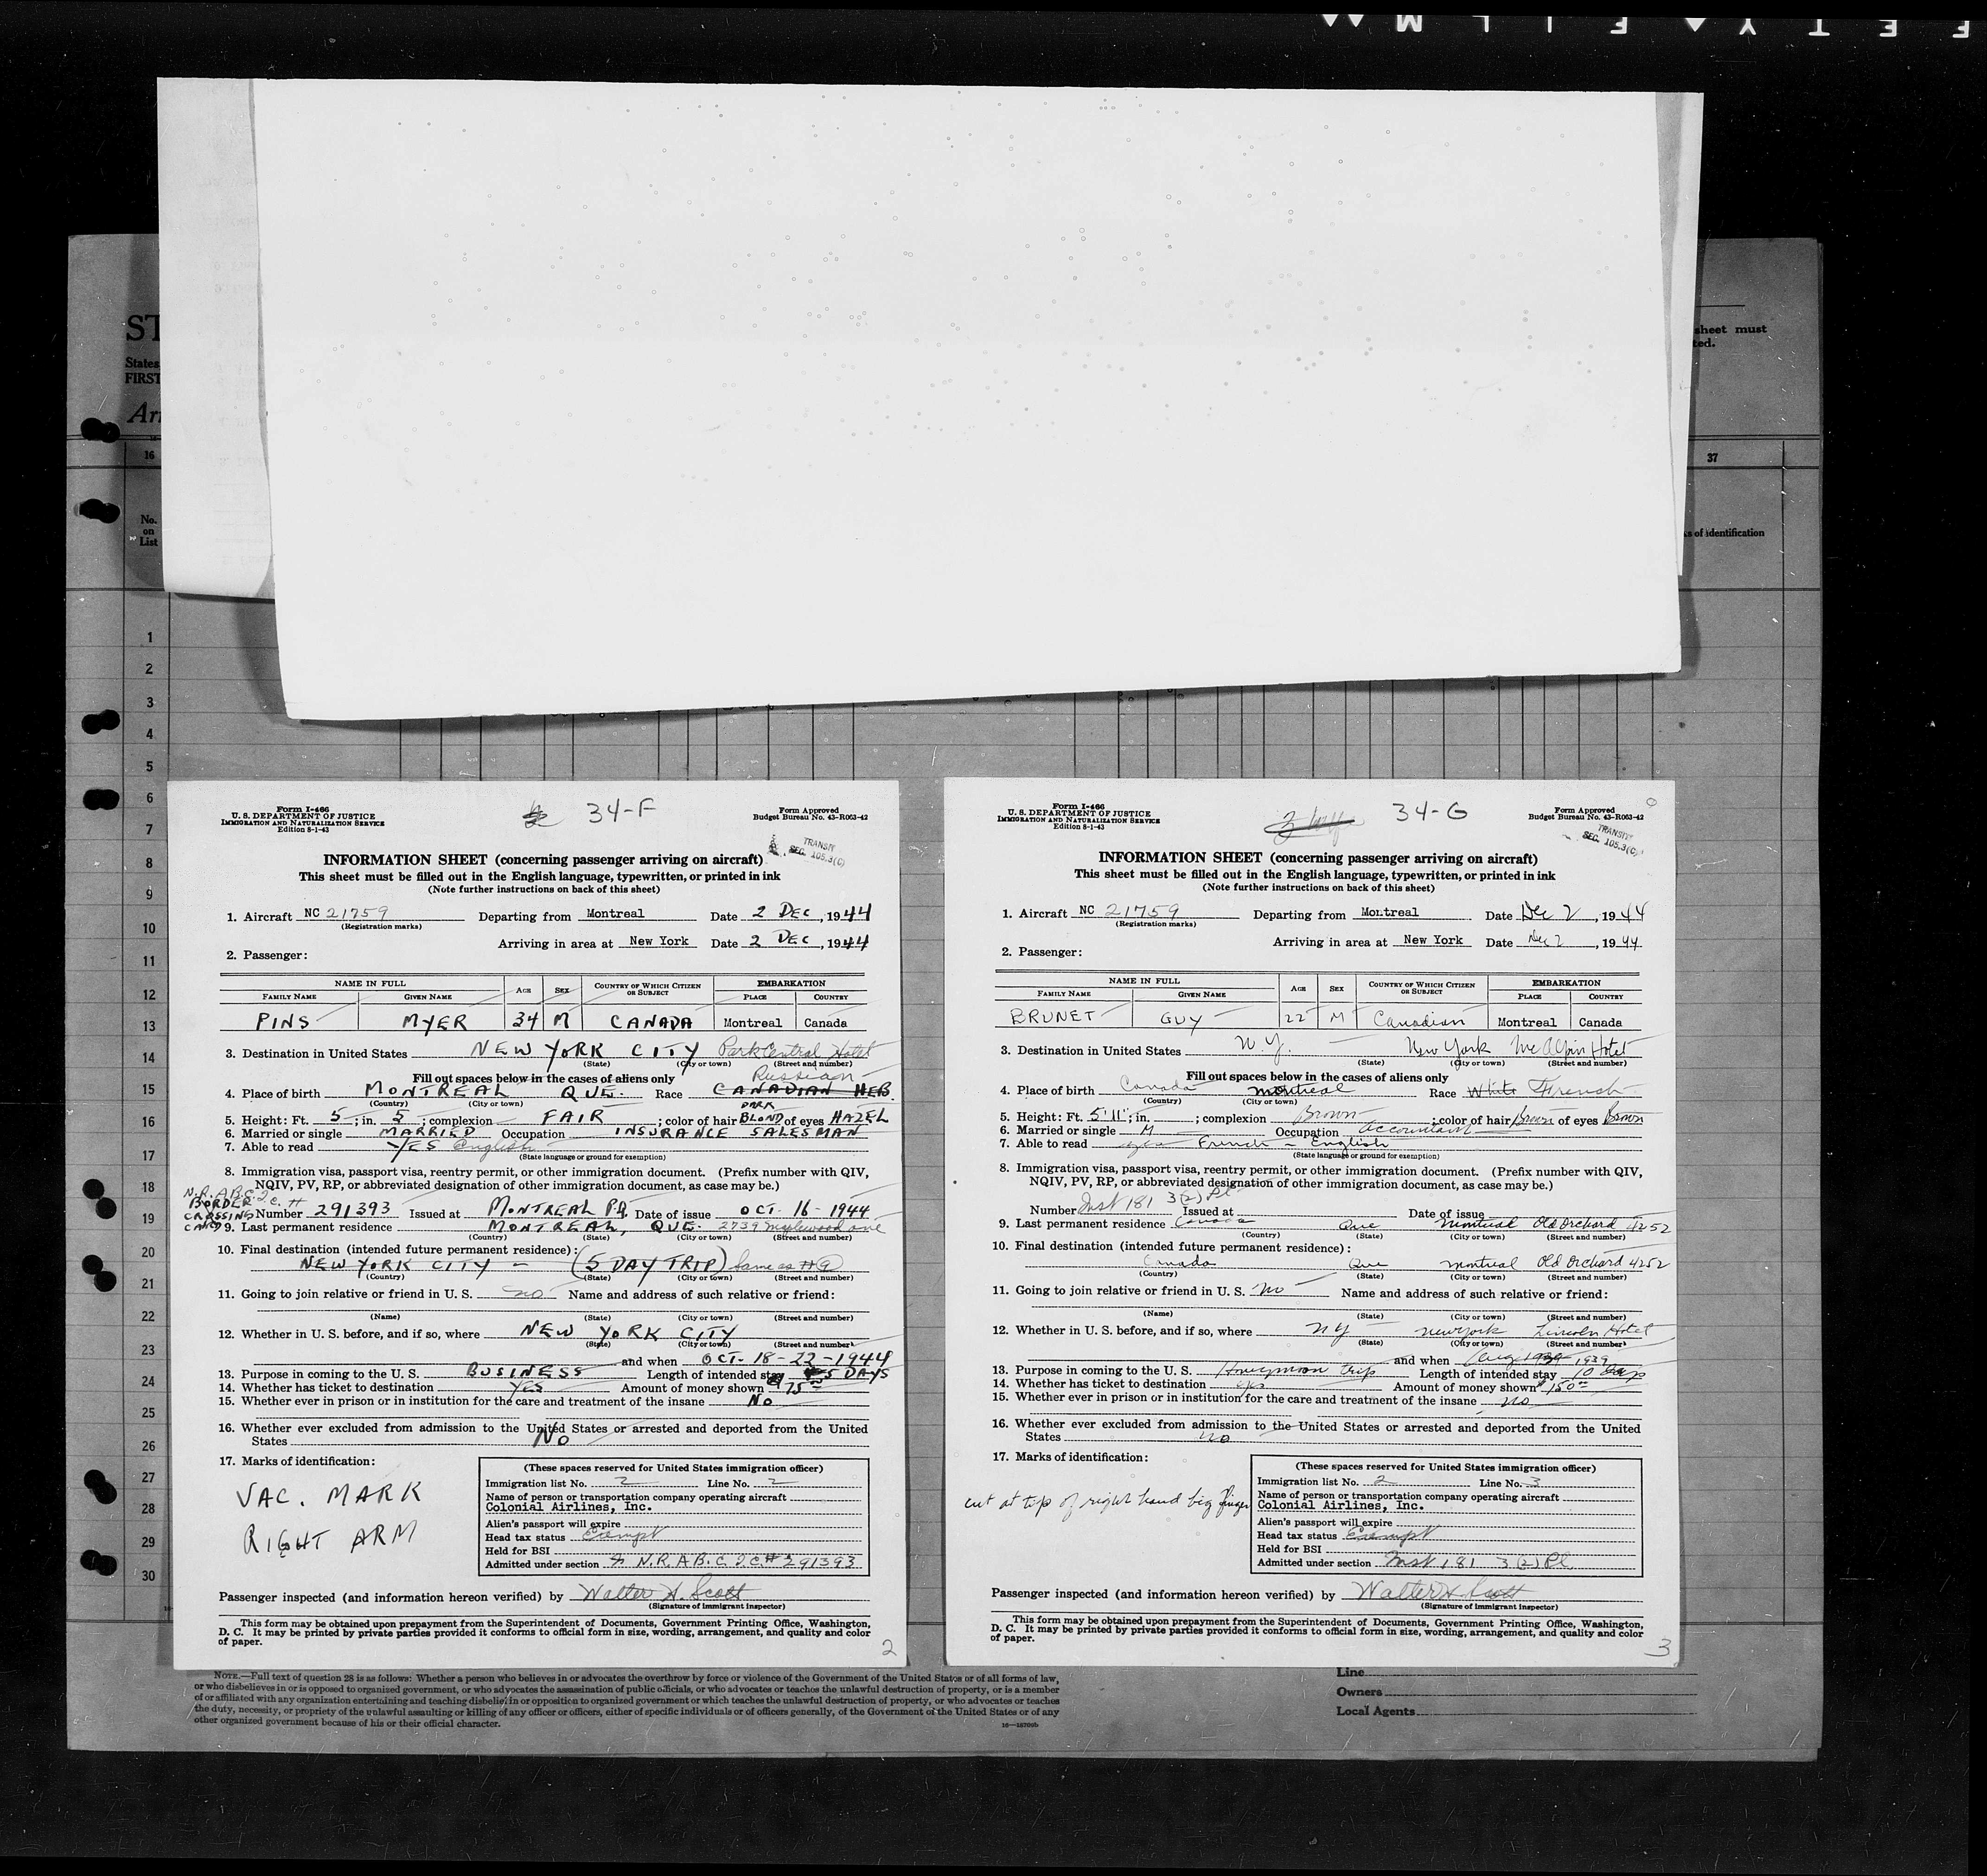 SAFETY FILM
ST
States
FIRST
Arr
16
No.
on
List
sheet must
ted.
37
ks of identification
1
2
3
4
5
6
7
8
9
10
11
12
13
14
15
16
17
18
19
20
21
22
23
24
25
26
27
28
29
30
Form I-466
U. S. DEPARTMENT OF JUSTICE
IMMIGRATION AND NATURALIZATION SERVICE
Edition 8-1-43
34-F
Form Approved
Budget Bureau No. 43-R063-42
TRANSIT
SEC. 105.3(C)
INFORMATION SHEET (concerning passenger arriving on aircraft)
This sheet must be filled out in the English language, typewritten, or printed in ink
(Note further instructions on back of this sheet)
1. Aircraft NC 21759 Departing from Montreal Date 2 DEC, 1944
(Registration marks)
Arriving in area at New York Date 2 DEC, 1944
2. Passenger:
NAME IN FULL AGE SEX COUNTRY OF WHICH CITIZEN OR SUBJECT EMBARKATION
FAMILY NAME GIVEN NAME PLACE COUNTRY
PINS MYER 34 M CANADA Montreal Canada
3. Destination in United States NEW YORK CITY Park Central Hotel
(State) (City or town) (Street and number)
Fill out spaces below in the cases of aliens only Russian
4. Place of birth MONTREAL QUE. Race CANADIAN HEB.
(Country) (City or town)
DARK
5. Height: Ft. 5; in. 5; complexion FAIR; color of hair BLOND of eyes HAZEL
6. Married or single MARRIED Occupation INSURANCE SALESMAN
7. Able to read YES English
(State language or ground for exemption)
8. Immigration visa, passport visa, reentry permit, or other immigration document. (Prefix number with QIV,
NQIV, PV, RP, or abbreviated designation of other immigration document, as case may be.)
N.R.A.B.C.I.C. #
BORDER
CROSSING
CARD
Number 291393 Issued at MONTREAL P.Q. Date of issue OCT. 16 - 1944
9. Last permanent residence MONTREAL, QUE. 2739 Maplewood ave
(Country) (State) (City or town) (Street and number)
10. Final destination (intended future permanent residence):
NEW YORK CITY - (5 DAY TRIP) Same as #9
(Country) (State) (City or town) (Street and number)
11. Going to join relative or friend in U. S. no Name and address of such relative or friend:
(Name) (State) (City or town) (Street and number)
12. Whether in U. S. before, and if so, where NEW YORK CITY
(State) (City or town) (Street and number)
and when OCT- 18-22-1944
13. Purpose in coming to the U. S. BUSINESS Length of intended stay 5 DAYS
14. Whether has ticket to destination YES Amount of money shown 75
15. Whether ever in prison or in institution for the care and treatment of the insane NO
16. Whether ever excluded from admission to the United States or arrested and deported from the United
States NO
17. Marks of identification:
VAC. MARK
RIGHT ARM
(These spaces reserved for United States immigration officer)
Immigration list No. 2 Line No. 2
Name of person or transportation company operating aircraft
Colonial Airlines, Inc.
Alien's passport will expire
Head tax status Exempt
Held for BSI
Admitted under section N.R.A.B.C.I.C.# 291393
Passenger inspected (and information hereon verified) by Walter H. Scott
(Signature of immigrant inspector)
This form may be obtained upon prepayment from the Superintendent of Documents, Government Printing Office, Washington,
D. C. It may be printed by private parties provided it conforms to official form in size, wording, arrangement, and quality and color
of paper.
2
Form I-466
U. S. DEPARTMENT OF JUSTICE
IMMIGRATION AND NATURALIZATION SERVICE
Edition 8-1-43
34-G
Form Approved
Budget Bureau No. 43-R063-42
TRANSIT
SEC. 105.3(C)
INFORMATION SHEET (concerning passenger arriving on aircraft)
This sheet must be filled out in the English language, typewritten, or printed in ink
(Note further instructions on back of this sheet)
1. Aircraft NC 21759 Departing from Montreal Date Dec 2, 1944
(Registration marks)
Arriving in area at New York Date Dec 2, 1944
2. Passenger:
NAME IN FULL AGE SEX COUNTRY OF WHICH CITIZEN OR SUBJECT EMBARKATION
FAMILY NAME GIVEN NAME PLACE COUNTRY
BRUNET GUY 22 M Canadian Montreal Canada
3. Destination in United States N.Y. New York McAlpin Hotel
(State) (City or town) (Street and number)
Fill out spaces below in the cases of aliens only
4. Place of birth Canada Montreal Race White French
(Country) (City or town)
5. Height: Ft. 5'11"; in.; complexion Brown; color of hair Brown of eyes Brown
6. Married or single M Occupation accountant
7. Able to read yes French - English
(State language or ground for exemption)
8. Immigration visa, passport visa, reentry permit, or other immigration document. (Prefix number with QIV,
NQIV, PV, RP, or abbreviated designation of other immigration document, as case may be.)
Number Inst 181 3(2) Pl Issued at Date of issue
9. Last permanent residence Canada Que Montreal Old Orchard 4252
(Country) (State) (City or town) (Street and number)
10. Final destination (intended future permanent residence):
Canada Que Montreal Old Orchard 4252
(Country) (State) (City or town) (Street and number)
11. Going to join relative or friend in U. S. no Name and address of such relative or friend:
(Name) (State) (City or town) (Street and number)
12. Whether in U. S. before, and if so, where NY New York Lincoln Hotel
(State) (City or town) (Street and number)
and when Aug 1939 1939
13. Purpose in coming to the U. S. Honeymoon trip Length of intended stay 10 days
14. Whether has ticket to destination yes Amount of money shown $150
15. Whether ever in prison or in institution for the care and treatment of the insane no
16. Whether ever excluded from admission to the United States or arrested and deported from the United
States no
17. Marks of identification:
cut at tip of right hand big finger
(These spaces reserved for United States immigration officer)
Immigration list No. 2 Line No. 3
Name of person or transportation company operating aircraft
Colonial Airlines, Inc.
Alien's passport will expire
Head tax status Exempt
Held for BSI
Admitted under section Inst 181 3(2) Pl
Passenger inspected (and information hereon verified) by Walter H Scott
(Signature of immigrant inspector)
This form may be obtained upon prepayment from the Superintendent of Documents, Government Printing Office, Washington,
D. C. It may be printed by private parties provided it conforms to official form in size, wording, arrangement, and quality and color
of paper.
3
NOTE.—Full text of question 28 is as follows: Whether a person who believes in or advocates the overthrow by force or violence of the Government of the United States or of all forms of law,
or who disbelieves in or is opposed to organized government, or who advocates the assassination of public officials, or who advocates or teaches the unlawful destruction of property, or is a member
of or affiliated with any organization entertaining and teaching disbelief in or opposition to organized government or which teaches the unlawful destruction of property, or who advocates or teaches
the duty, necessity, or propriety of the unlawful assaulting or killing of any officer or officers, either of specific individuals or of officers generally, of the Government of the United States or of any
other organized government because of his or their official character.
Line
Owners
Local Agents